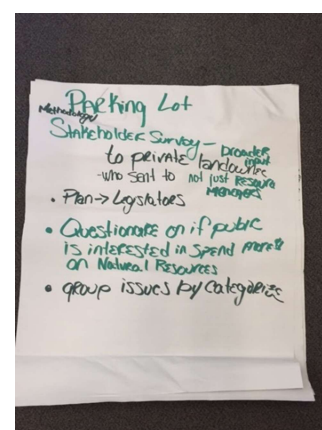 Parking Lot
Methodology
Stakeholder Survey - broader input
to private landowners
-who sent to not just Resource Managers
• Plan → Legislators
• Questionare on if public
is interested in spend more $
on Natural Resources
• group issues by categorize